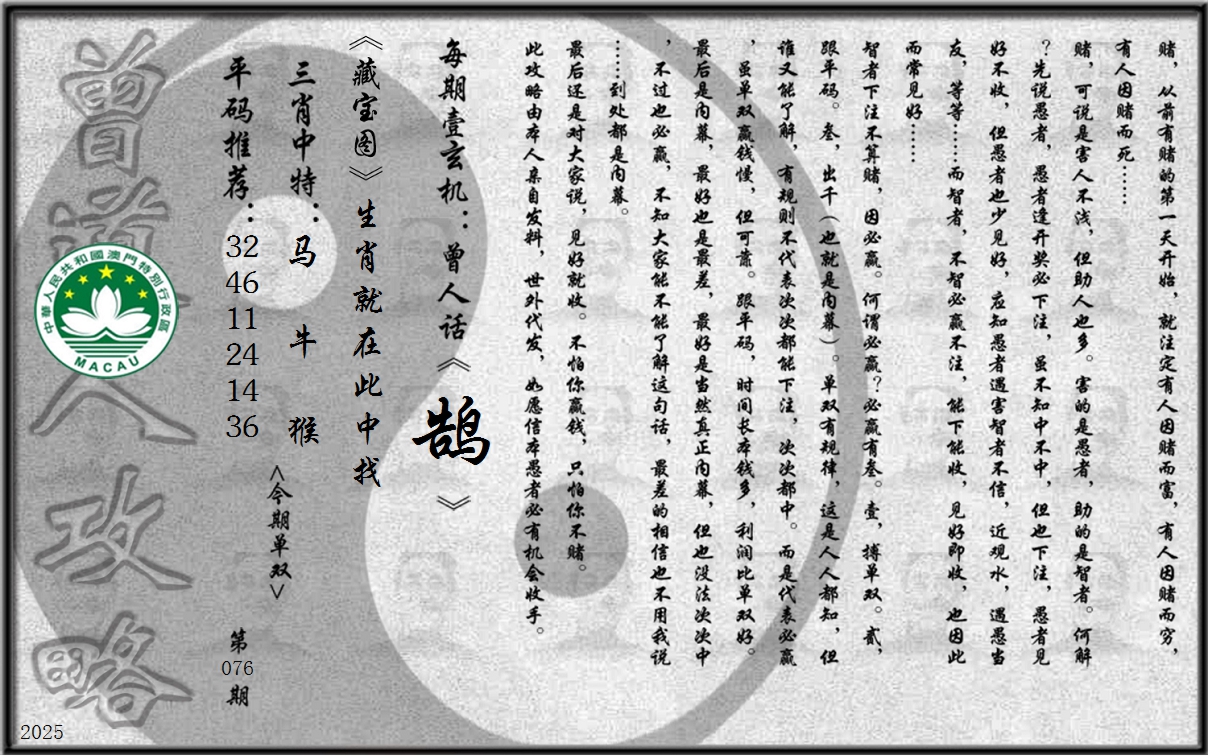 赌，从前有赌的第一天开始，就注定有人因赌而富，有人因赌而穷，
有人因赌而死……
赌，可说是害人不浅，但助人也多。害的是愚者，助的是智者。何解
？先说愚者，愚者逢开奖必下注，虽不知中不中，但也下注，愚者见
好不收，但愚者也少见好，应知愚者遇害智者不信，近观水，遇愚当
友，等等……而智者，不智必赢不注，能下能收，见好即收，也因此
而常见好……
智者下注不算赌，因必赢。何谓必赢？必赢有叁。壹，搏单双。贰，
跟平码。叁，出千（也就是内幕）。单双有规律，这是人人都知，但
谁又能了解，有规则不代表次次都能下注，次次都中。而是代表必赢
，虽单双赢钱慢，但可靠。跟平码，时间长本钱多，利润比单双好。
最后是内幕，最好也是最差，最好是当然真正内幕，但也没法次次中
，不过也必赢，不知大家能不能了解这句话，最差的相信也不用我说
……到处都是内幕。
最后还是对大家说，见好就收。不怕你赢钱，只怕你不赌。
此攻略由本人亲自发料，世外代发，如愿信本愚者必有机会收手。
每期壹玄机：曾人话《鹄》
《藏宝图》生肖就在此中找
三肖中特：马 牛 猴
<今期单双>
平码推荐：32 46 11 24 14 36
第076期
曾道人攻略
中華人民共和國澳門特別行政區
MACAU
2025